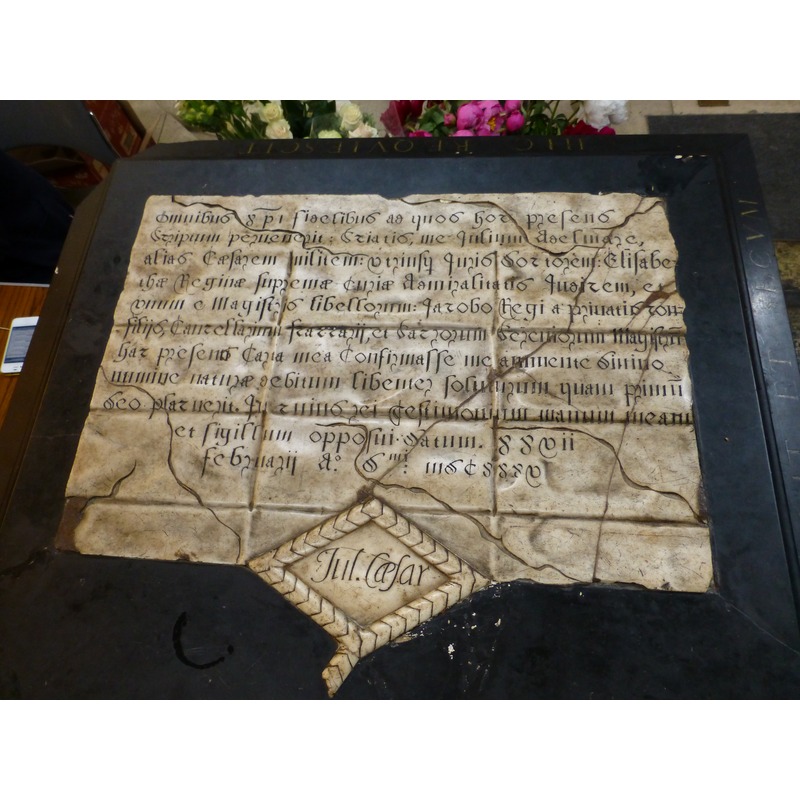 HIC REQVIESCIT
Omnibus Xpi fidelibus ad quos hoc presens
Scriptum pervenerit: Sciatis, me Julium Adelmare,
alias Cæsarem militem: utriusq Juris doctorem: Elisabe
thæ Reginæ supremæ Curiæ Admiralitatis Judicem, et
unum e Magistris libellorum: Jacobo Regi a privatis con
siliis, Cancellarium Scaccarii, et Sacrorum Scriniorum Magistrum
hac presens Carta mea Confirmasse me annuente divino
numine naturæ debitum libenter soluturum quam primū
deo placuerit. In cuius rei testimonium manum meam
et sigillum apposui. datum. XXVII
Februarii A° Dmi: MDCXXXV
Jul. Cæsar